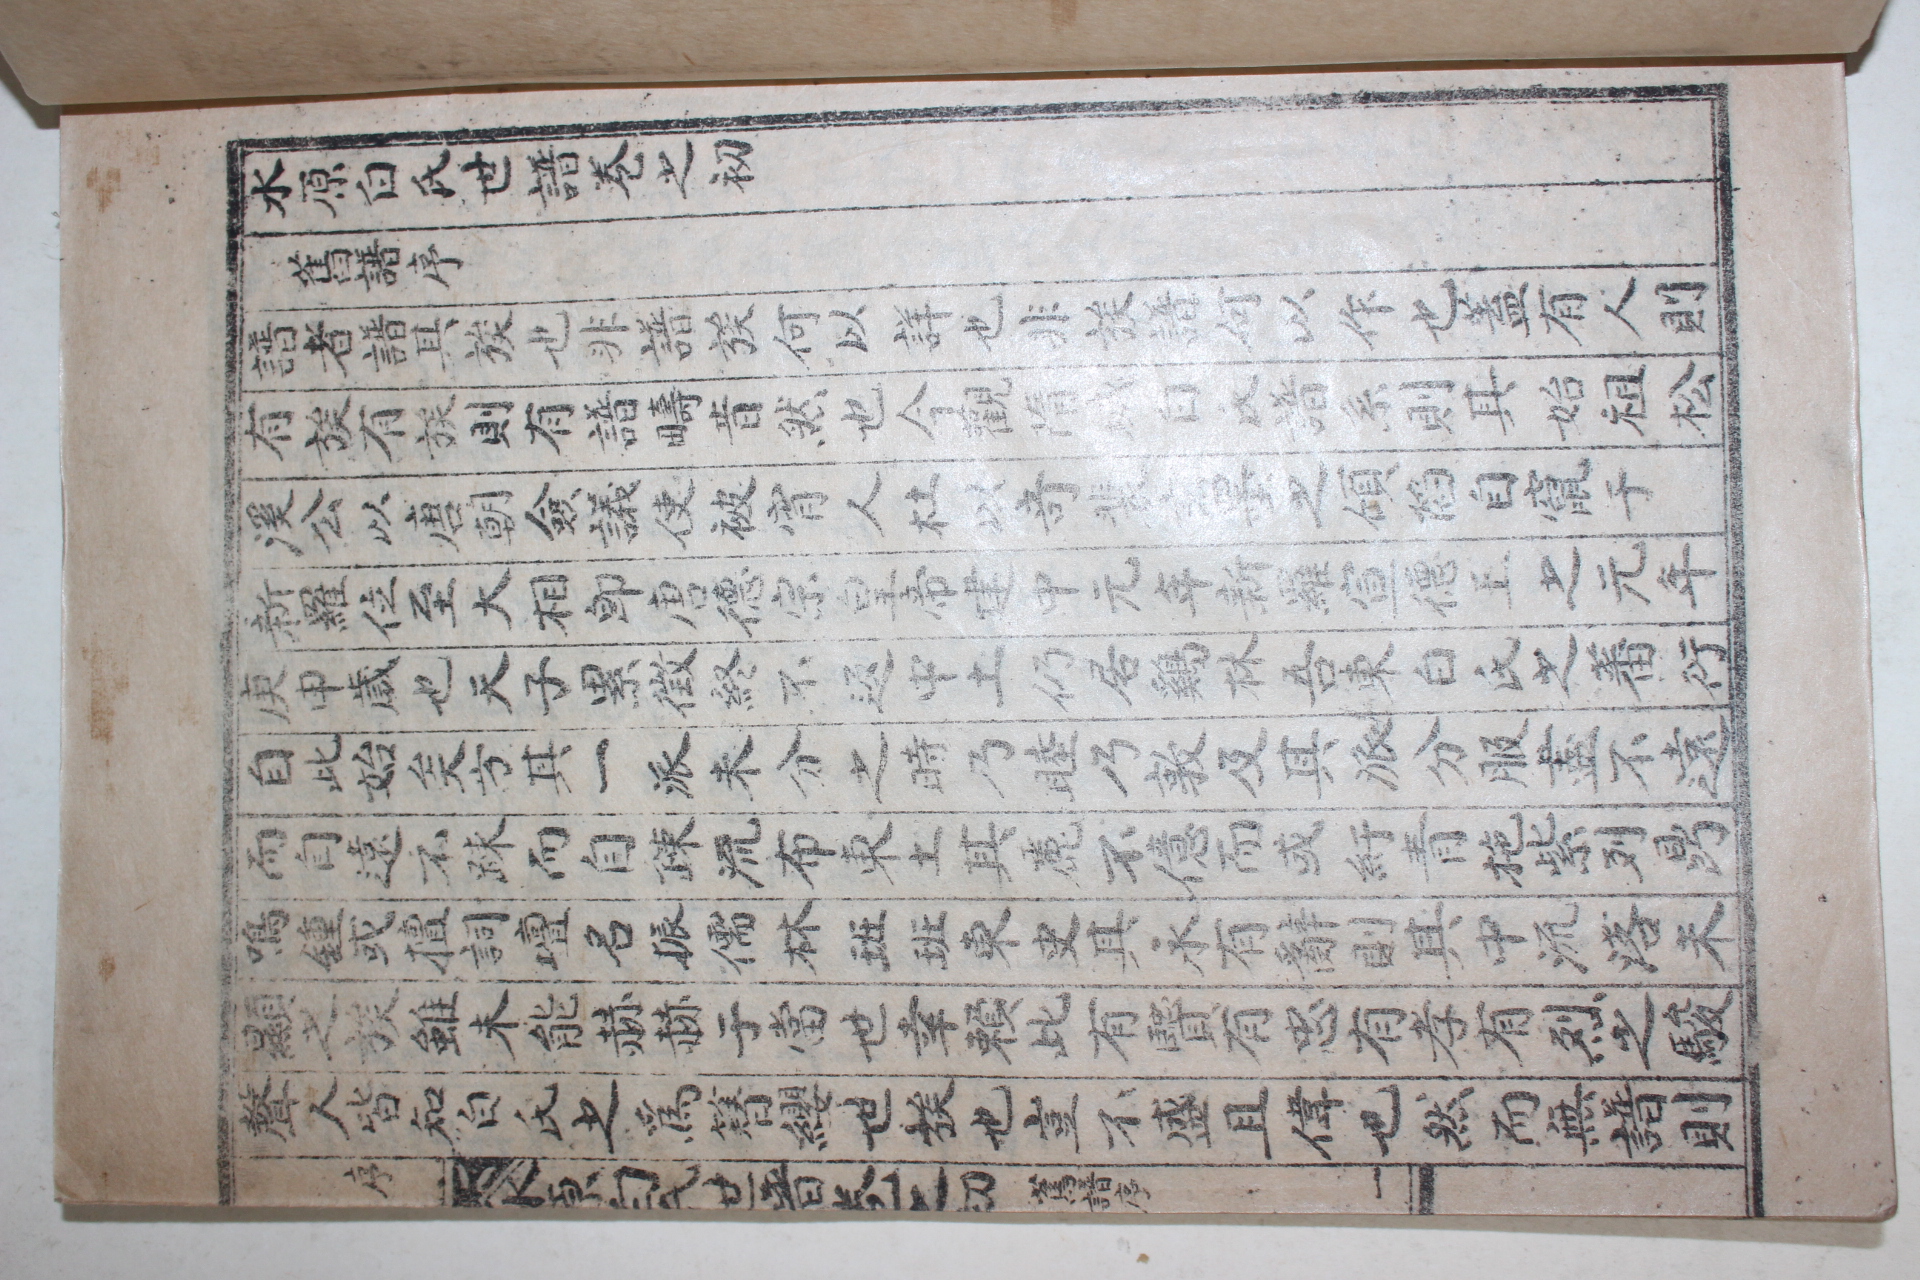 水原白氏世譜卷之初
舊譜序
譜者譜其族也非譜族何以詳也非族譜何以作也蓋有人則
有族有族則有譜疇昔然也今觀隋城白氏譜系則其始祖松
溪公以唐朝僉議使被宵人杜以奇裴之碩陷自竄于
新羅位至大相卽唐德宗皇帝建中元年新羅宣德王之元年
庚申歲也天子累徵終不返中土仍居鷄林吾東白氏之蕃衍
自此始矣方其一派未分之時乃睦乃敦及其派分服盡不遠
而自遠不疎而自疎流布東土其麗不億而或紆靑拖紫列鼎
鳴鍾或擅詞壇名振儒林班班東史其永有辭則其中流落未
顯之族雖未能赫赫于當世幸賴此有賢有忠有孝有烈之駿
聲人皆知白氏之爲簪纓世族也豈不盛且偉也然而無譜則
序 水原白氏世譜卷之初 舊譜序 一